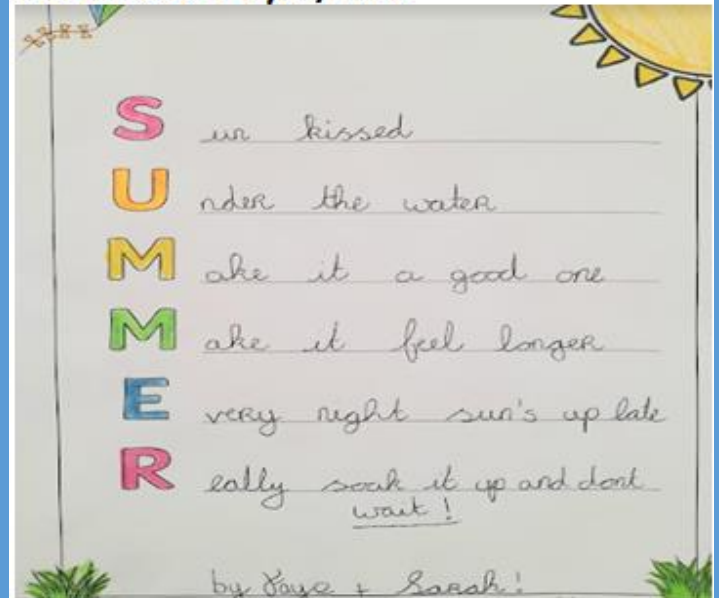 Sun kissed
Under the water
Make it a good one
Make it feel longer
Every night sun's up late
Really soak it up and dont
wait!
by Faye + Sarah!